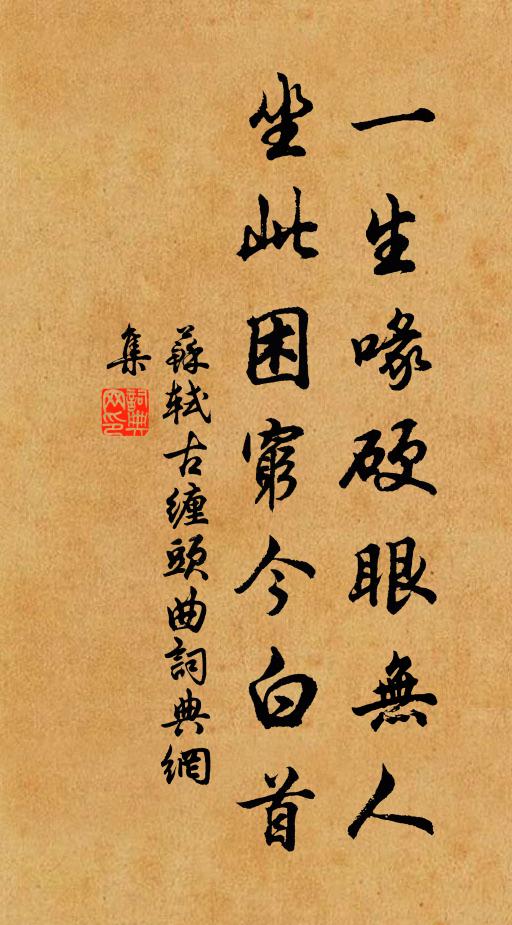 一生喙硬眼無人
坐此困窮今白首
蘇軾古纏頭曲詞典網
集
詞典網印